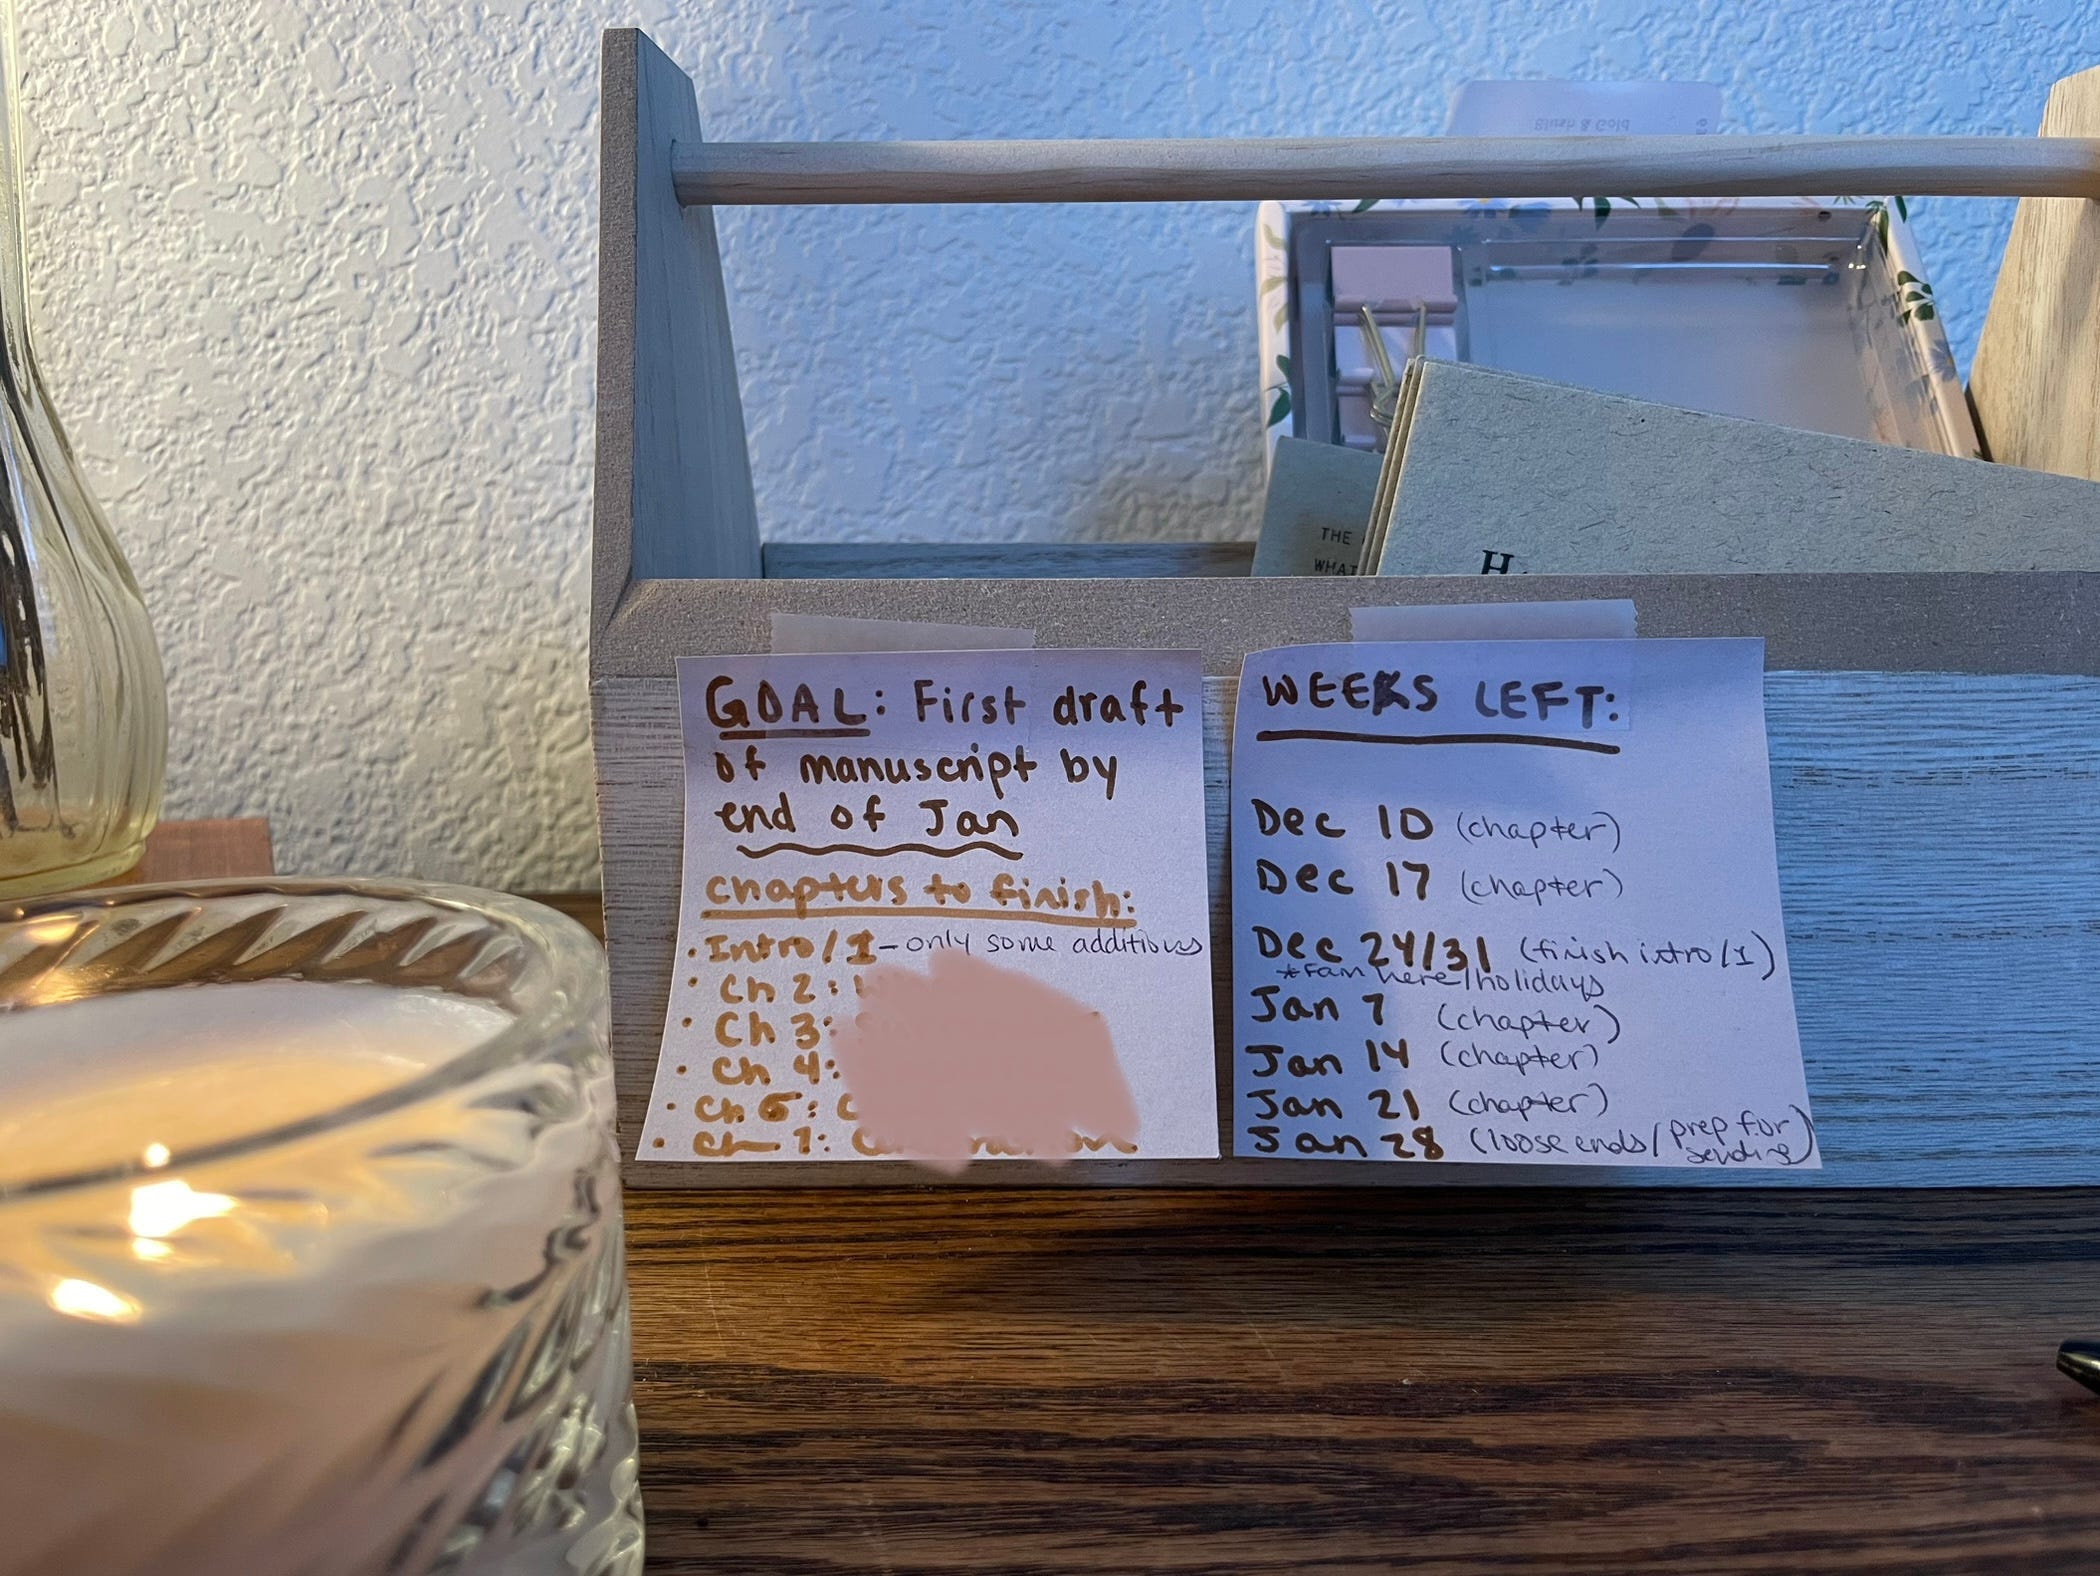 Blush & Gold
THE
WHAT
H
GOAL: First draft
of manuscript by
end of Jan
chapters to finish:
• Intro/1 - only some additions
• Ch 2:
• Ch 3:
• Ch 4:
• Ch 5:
• Ch 7:
WEEKS LEFT:
Dec 10 (chapter)
Dec 17 (chapter)
Dec 24/31 (finish intro/1)
*Fam here/holidays
Jan 7 (chapter)
Jan 14 (chapter)
Jan 21 (chapter)
Jan 28 (loose ends/prep for
sending)